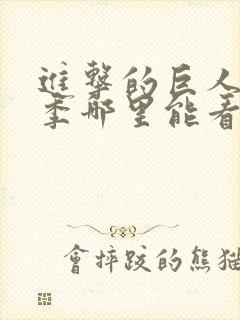 進撃的巨人
季哪里能看
會摔跤的熊猫